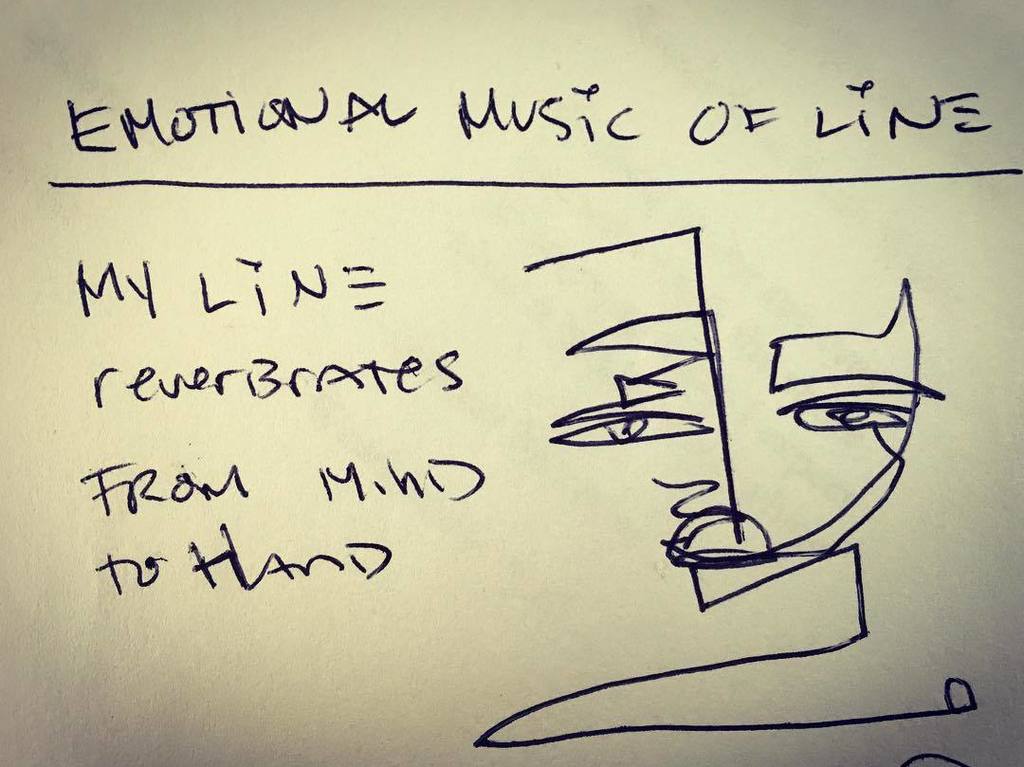 EMOTIONAL MUSiC OF LiNE
MY LiNE
reverBrATes
FROM MihD
to HAND